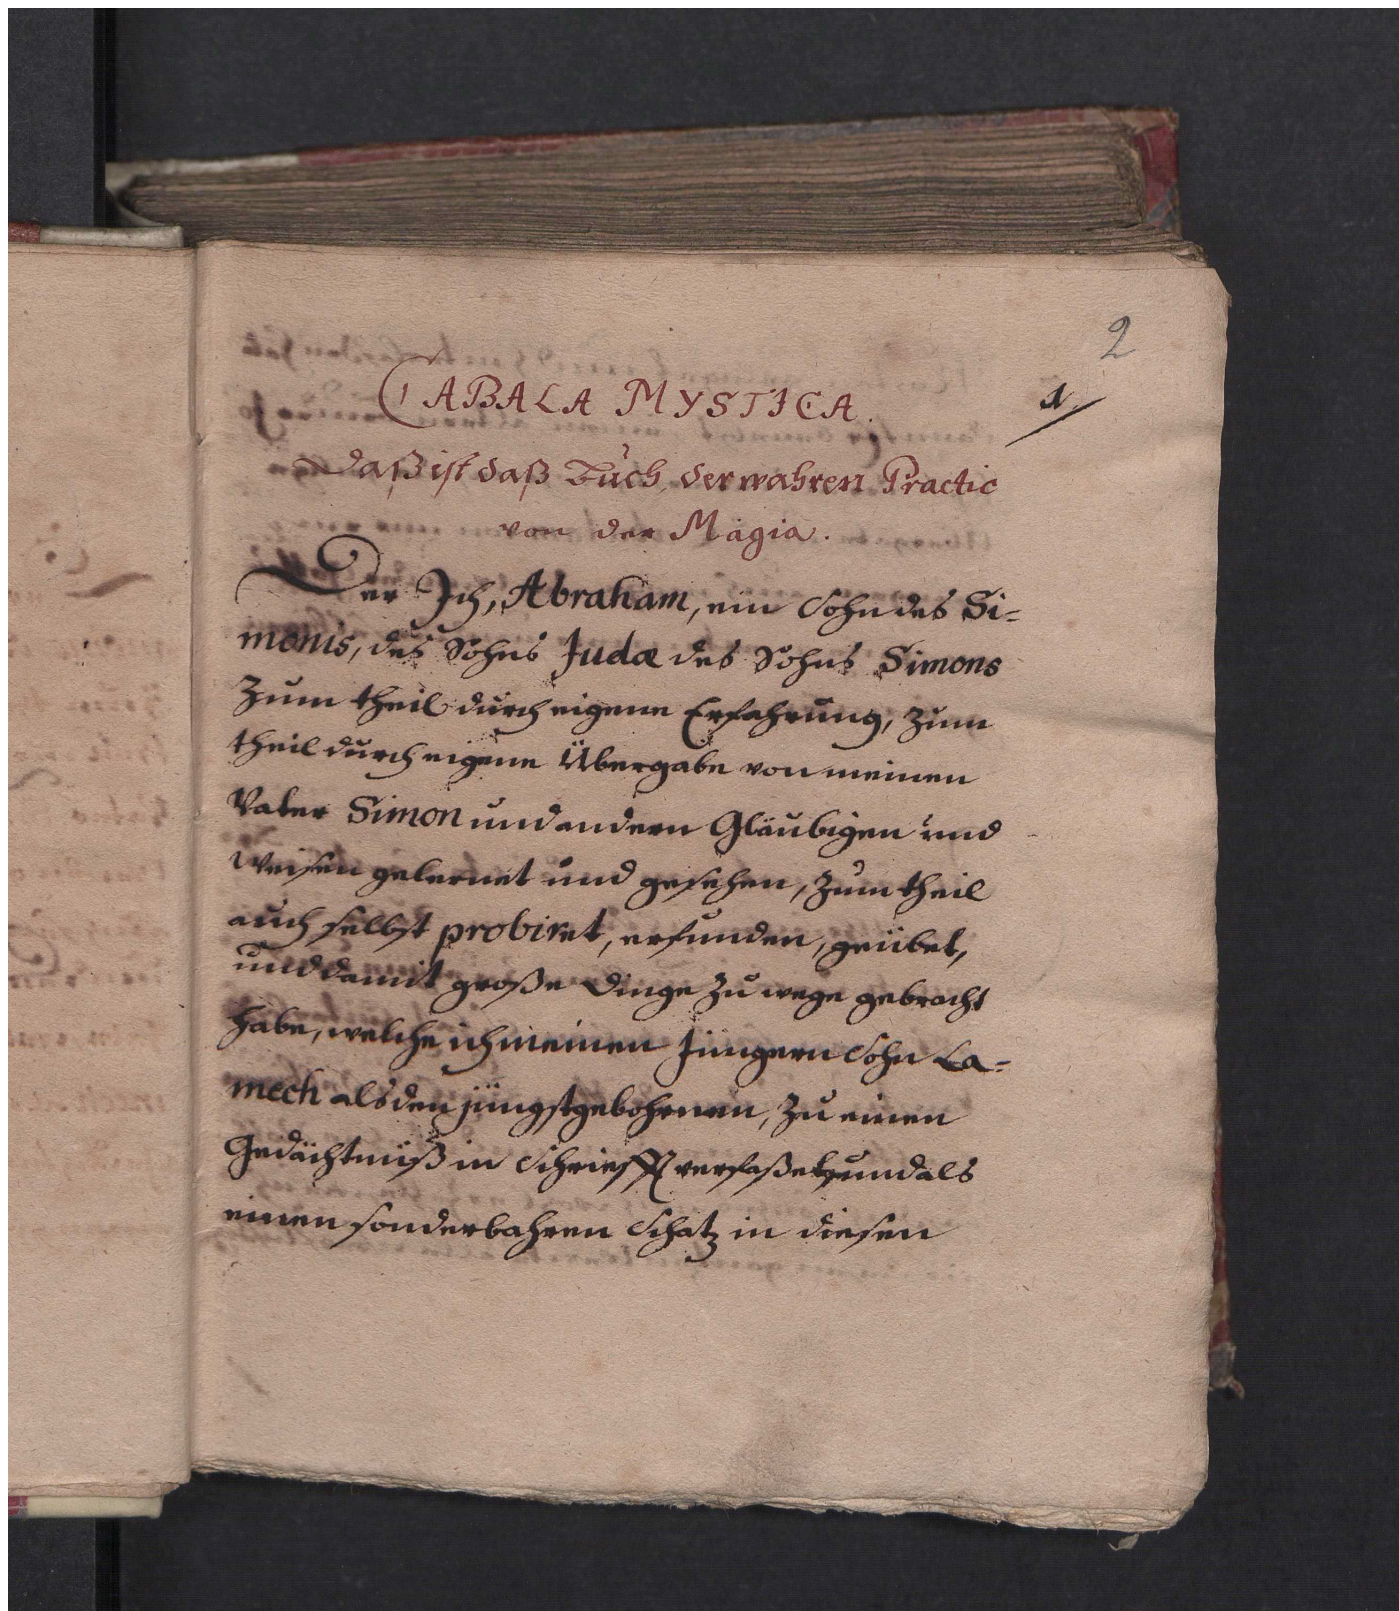 2
1.
CABALA MYSTICA.
Daß ist daß Buch, der wahren Practic
von der Magia.
Der Ich, Abraham, ein Sohn des Si-
monis, des Sohns Judæ des Sohns Simons
zum theil durch eigene Erfahrung, zum
theil durch eigene Übergabe von meinen
Vater Simon und andern Gläubigen und
Weisen gelernet und gesehen, zum theil
auch selbst probiret, erfunden, geübet,
und damit große Dinge zu wege gebracht
habe, welche ich meinen jüngern Sohn La-
mech als den jüngstgebohrnen, zu einen
Gedächtnüß in Schriefft verfaßet, und als
einen sonderbahren Schatz in diesen